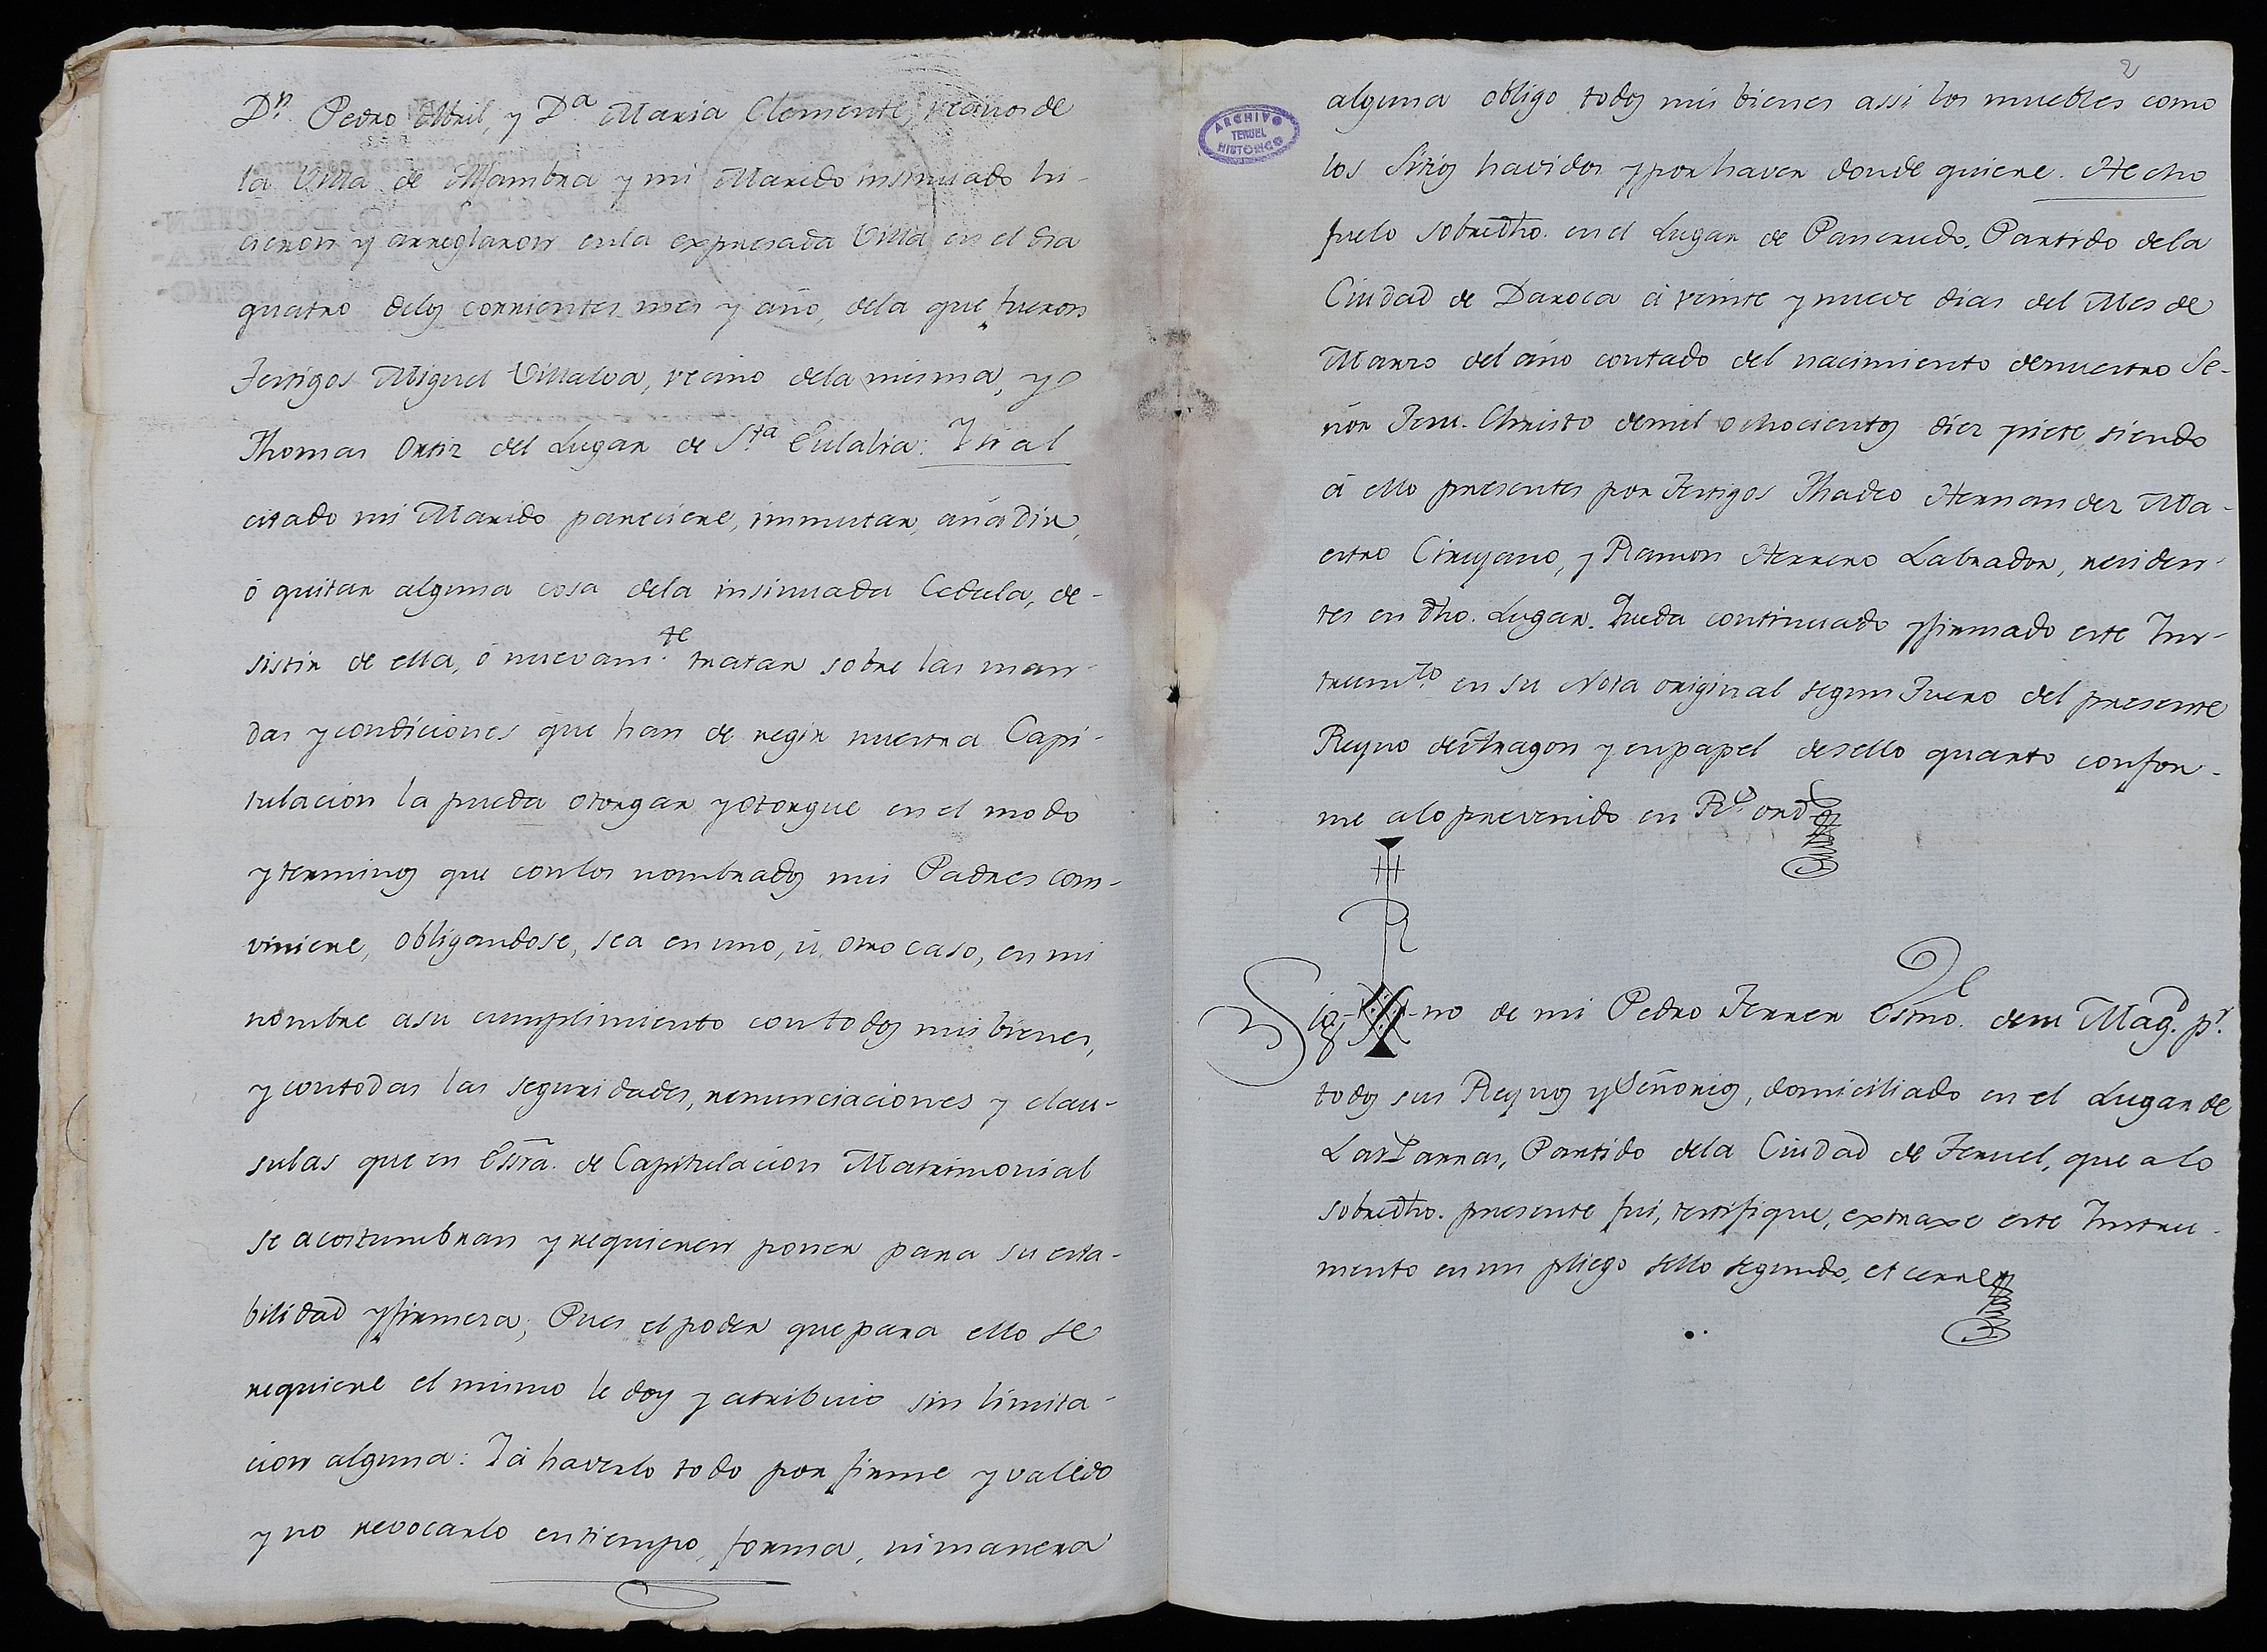 Dn. Pedro Abril, y Da. Maria Clemente, vecinos de
la Villa de Alfambra y mi Marido insinuado hi-
cieron y arreglaron enla expresada Villa en el dia
quatro delos corrientes mes y año, dela que fueron
Testigos Miguel Villalva, vecino dela misma, y
Thomas Ortiz del Lugar de Sta. Eulalia: Y si al
citado mi Marido pareciere, immutar, añadir,
ó quitar alguna cosa dela insinuada Cedula, de-
sistir de ella, ó nuevamte. tratar sobre las man-
das y condiciones que han de regir nuestra Capi-
tulacion la pueda otorgar y otorgue en el modo
y terminos que conlos nombrados mis Padres com-
viniere, obligandose, sea en uno, ú otro caso, en mi
nombre asu cumplimiento contodos mis bienes,
y contodas las seguridades, renunciaciones y clau-
sulas que en Essra. de Capitulacion Matrimonial
se acostumbran y requieren poner para su esta-
bilidad y firmeza; Pues el poder que para ello se
requiere el mismo le doy y atribuio sin limita-
cion alguna: Y á haverlo todo por firme y valido
y no revocarlo entiempo, forma, ni manera
2
ARCHIVO
TERUEL
HISTÓRICO
alguna obligo todos mis bienes assi los muebles como
los Sitios havidos y por haver donde quiere. Hecho
fue lo sobredho. en el Lugar de Pancrudo, Partido dela
Ciudad de Daroca á veinte y nueve dias del Mes de
Marzo del año contado del nacimiento denuestro Se-
ñor Jesu-Christo demil ochocientos diez y siete, siendo
á ello presentes por Testigos Thadeo Hernandez Ma-
estro Cirujano, y Ramon Herrero Labrador, residen-
tes en dho. Lugar. Queda continuado y firmado este Ins-
trumto. en su Nota original segun Fuero del presente
Reyno de Aragon y en papel desello quarto confor-
me alo prevenido en Rl. ord.
Sig-no de mi Pedro Ferrer Essno. desu Magd. pr.
todos sus Reynos y Señorios, domiciliado en el Lugar de
Las Parras, Partido dela Ciudad de Teruel, que a lo
sobredho. presente fui, testifique, extraxe este Instru-
mento en un pliego sello segundo, et cerre